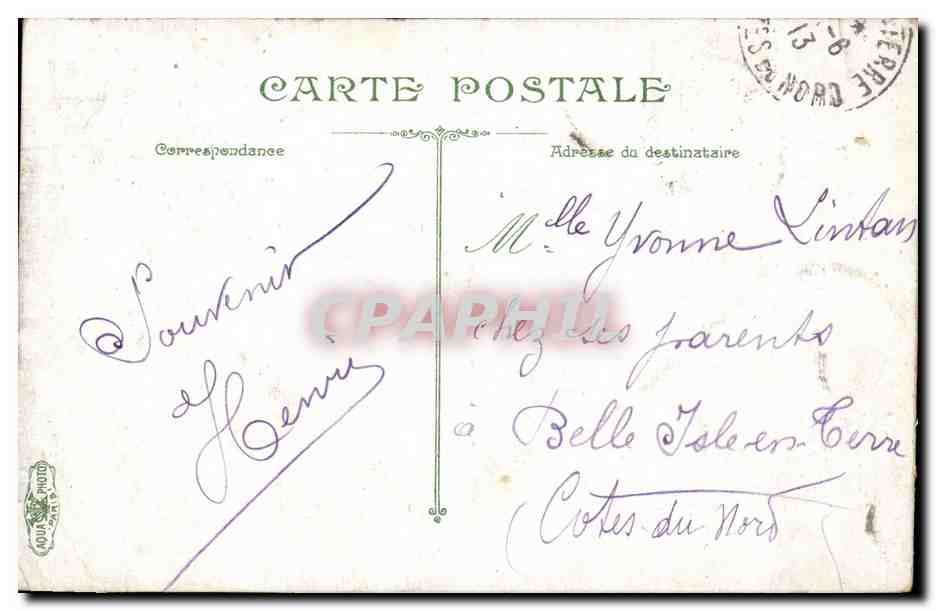 CARTE POSTALE
Correspondance
Adresse du destinataire
Souvenir
Henri
Mlle Yvonne Lintan
chez ses parents
à Belle Isle-en-Terre
(Cotes du Nord)
CPAPHIL
AQUA PHOTO
PARIS
-6
13
TERRE
ES DU NORD